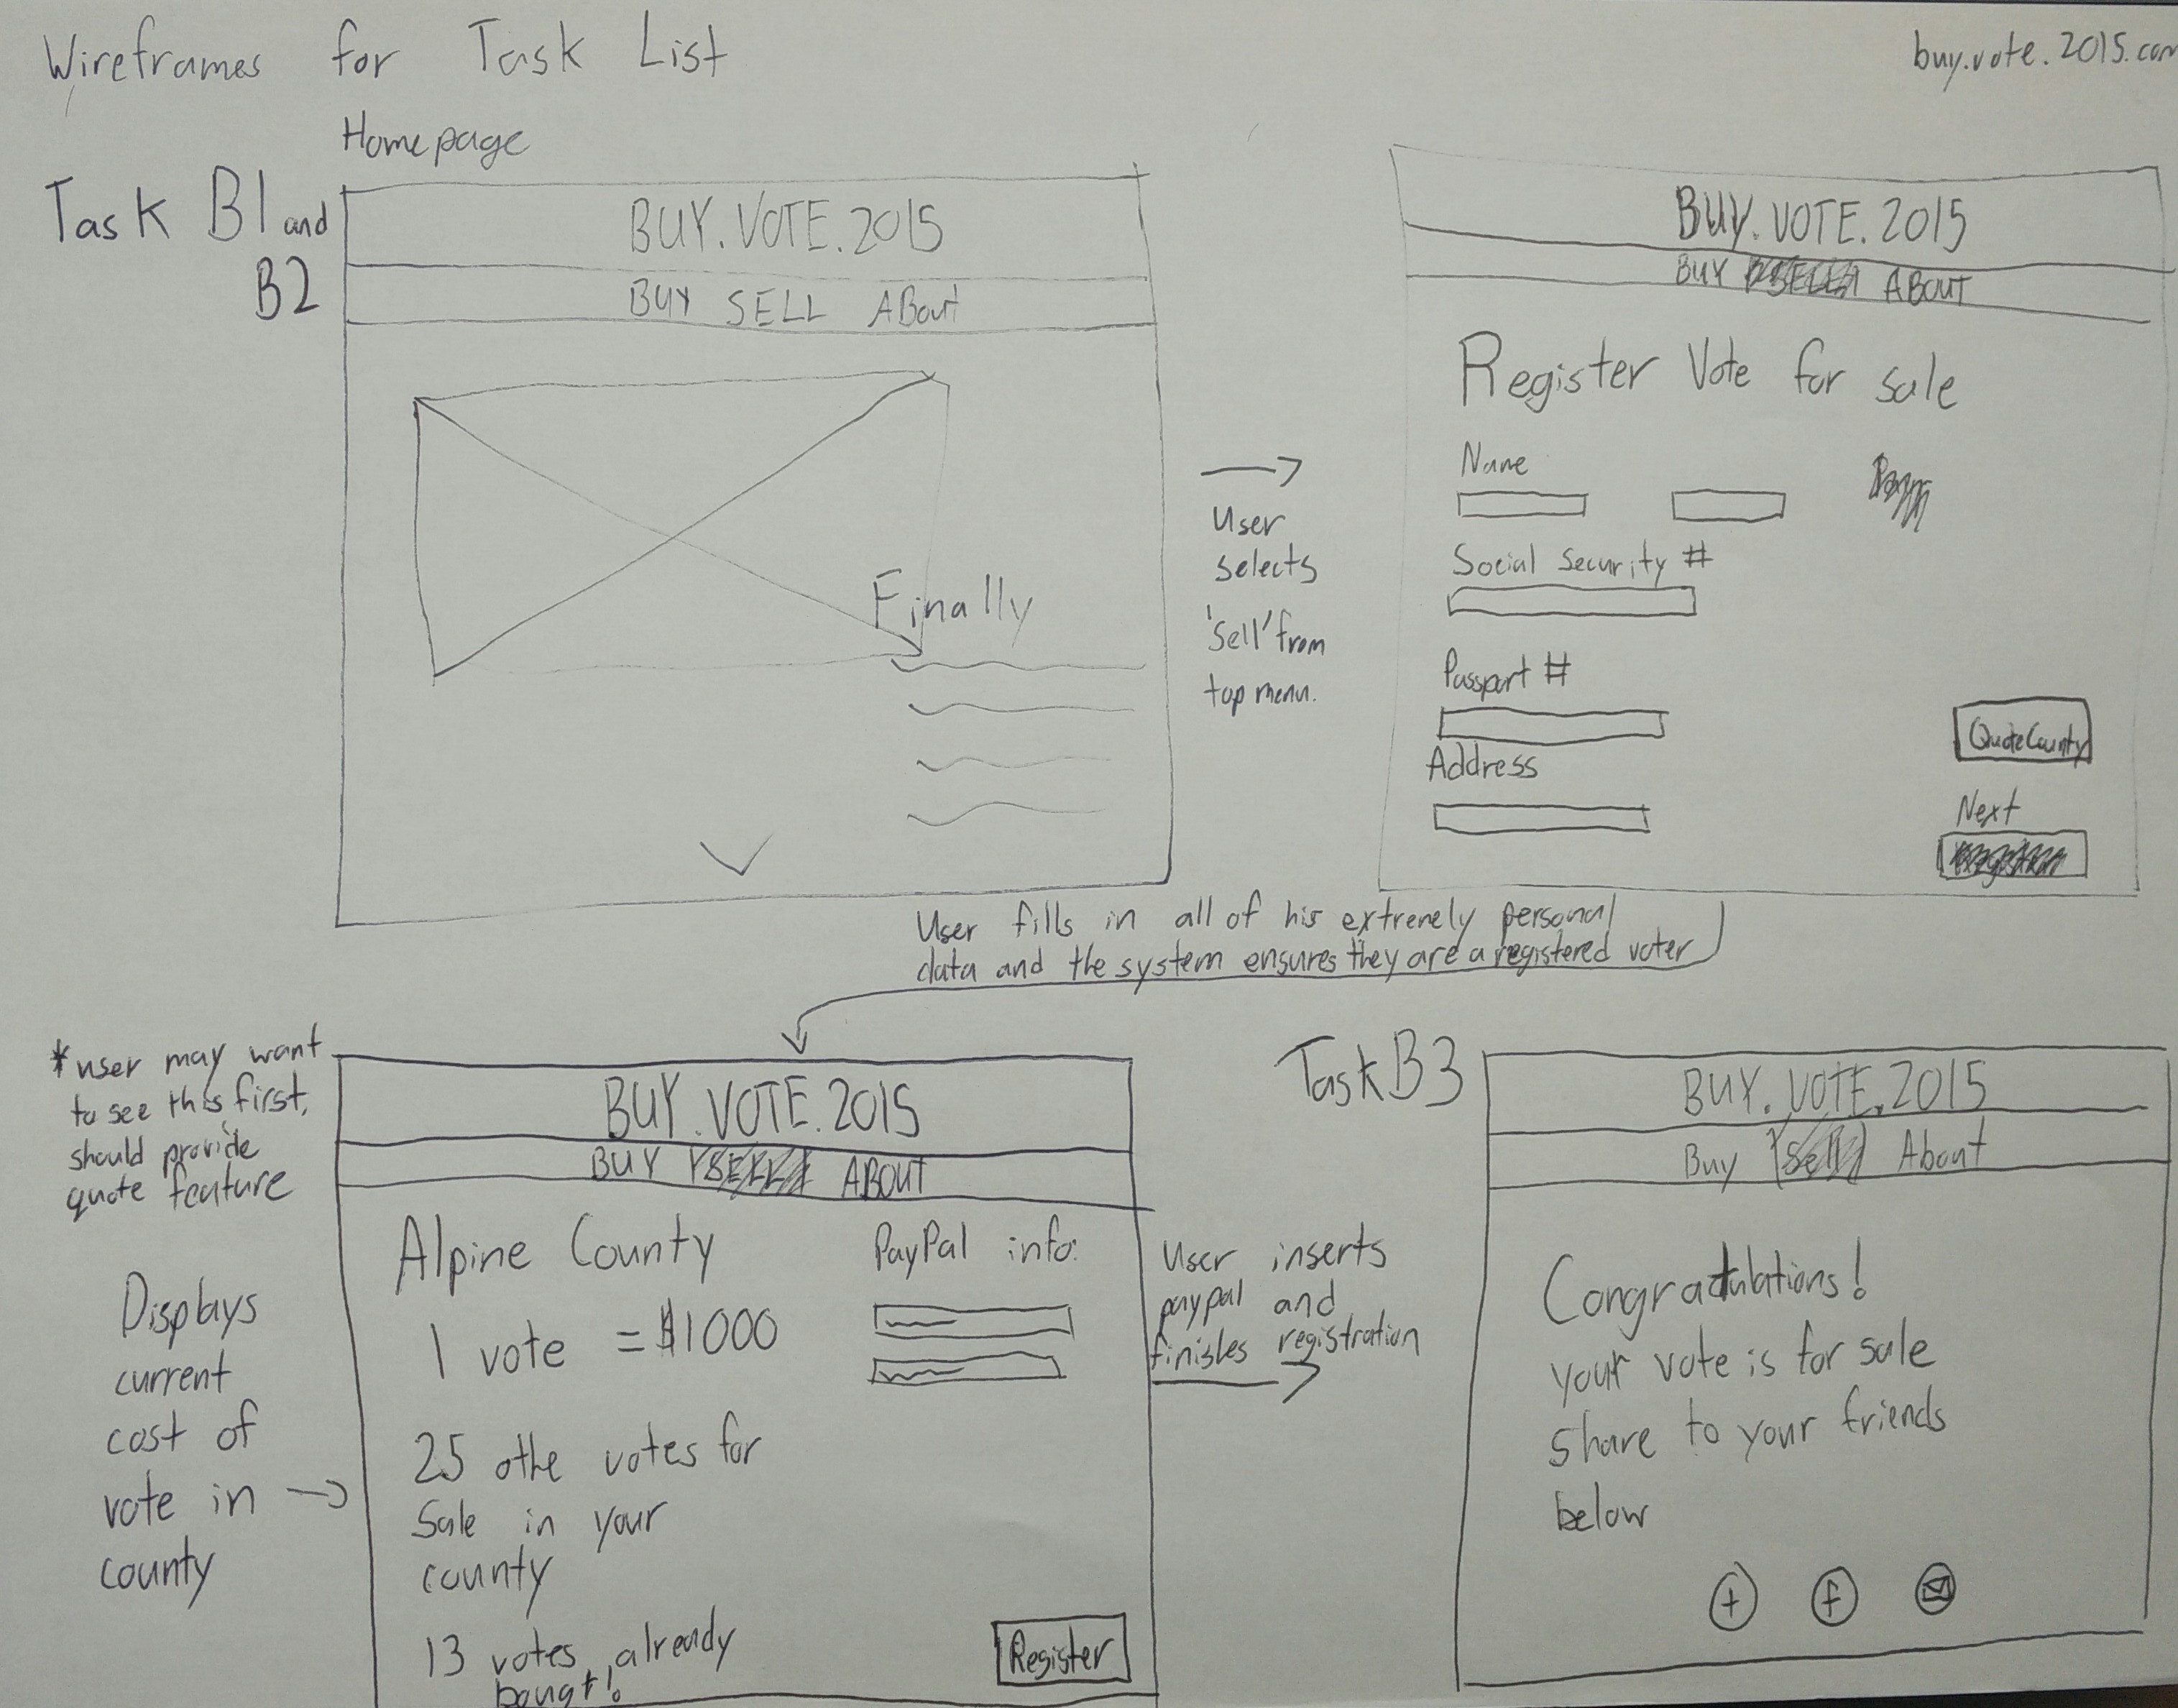 Wireframes for Task List
buy.vote.2015.com
Homepage
Task B1 and
B2
BUY.VOTE.2015
BUY SELL ABout
Finally
User
selects
'sell' from
top menu.
BUY.VOTE.2015
BUY SELL ABOUT
Register Vote for sale
Name
Social Security #
Passport #
Address
Quote County
Next
User fills in all of his extremely personal
data and the system ensures they are a registered voter
*user may want
to see this first,
should provide
quote feature
Displays
current
cost of
vote in
county
BUY.VOTE.2015
BUY SELL ABOUT
Alpine County
1 vote = $1000
25 othe votes for
sale in your
county
13 votes already
bought!
PayPal info:
Register
User inserts
paypal and
finishes registration
Task B3
BUY.VOTE.2015
Buy Sell About
Congratulations!
your vote is for sale
share to your friends
below
t f